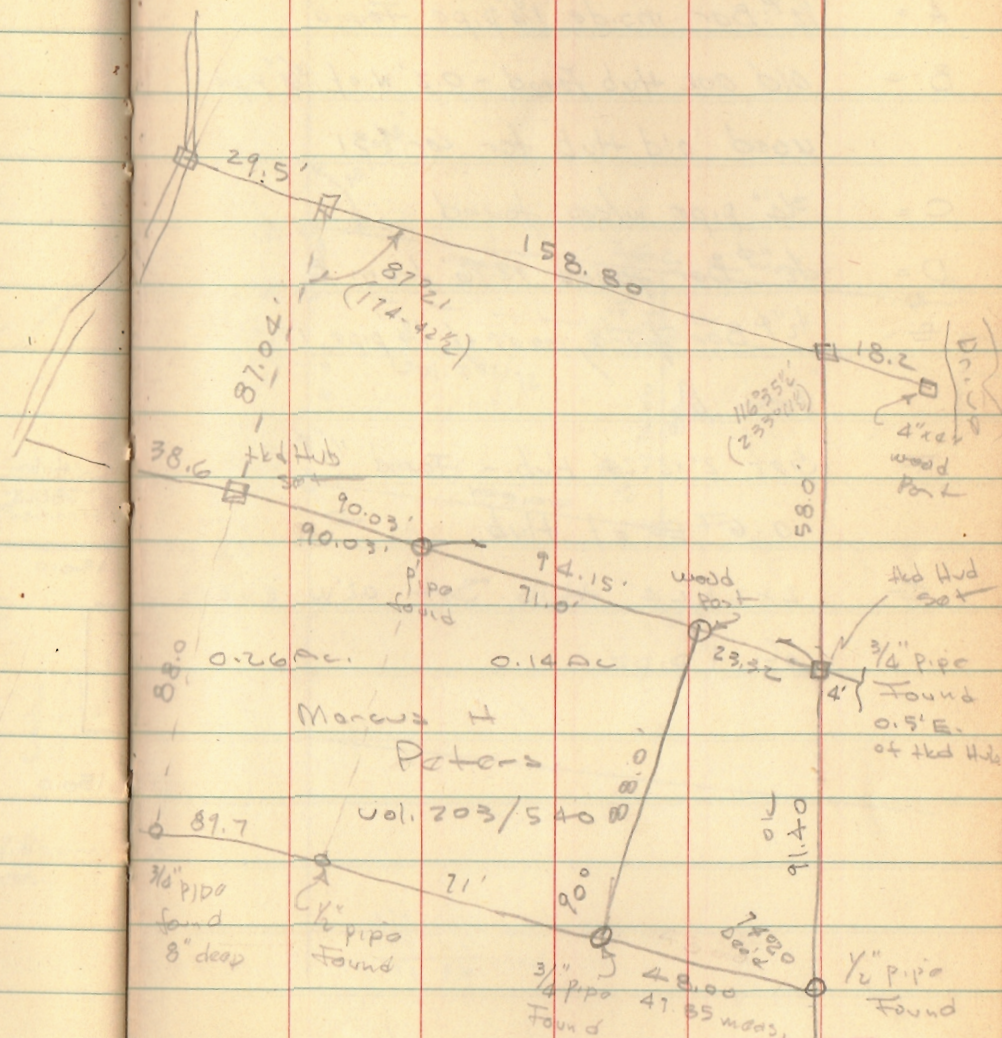 29.5'
158.80
87°21'
(174-42½)
87.04'
18.2
116°35½'
(233°11')
4"x4"
wood
Post
58.0'
38.6
tkd Hub
Set
90.03'
90.03'
pipe
found
94.15'
71.0'
wood
Post
tkd Hub
Set
23.32
4'
3/4" pipe
Found
0.5' E.
of tkd Hub
88.0
0.26 Ac.
0.14 Ac
Marcus H
Peters
vol. 203/540
88.0'
ok
91.40
89.7
3/4" pipe
found
8" deep
1/2" pipe
Found
71'
90°
3/4" pipe
Found
74°20
Deed
48.00
47.85 meas.
1/2" pipe
Found